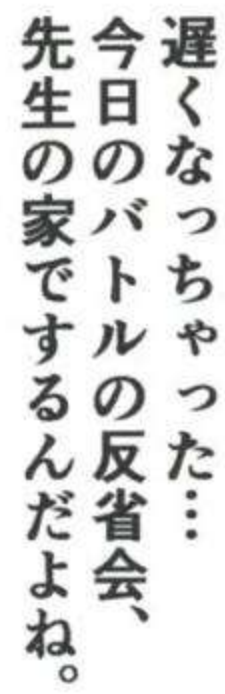 遅くなっちゃった…
今日のバトルの反省会、
先生の家でするんだよね。